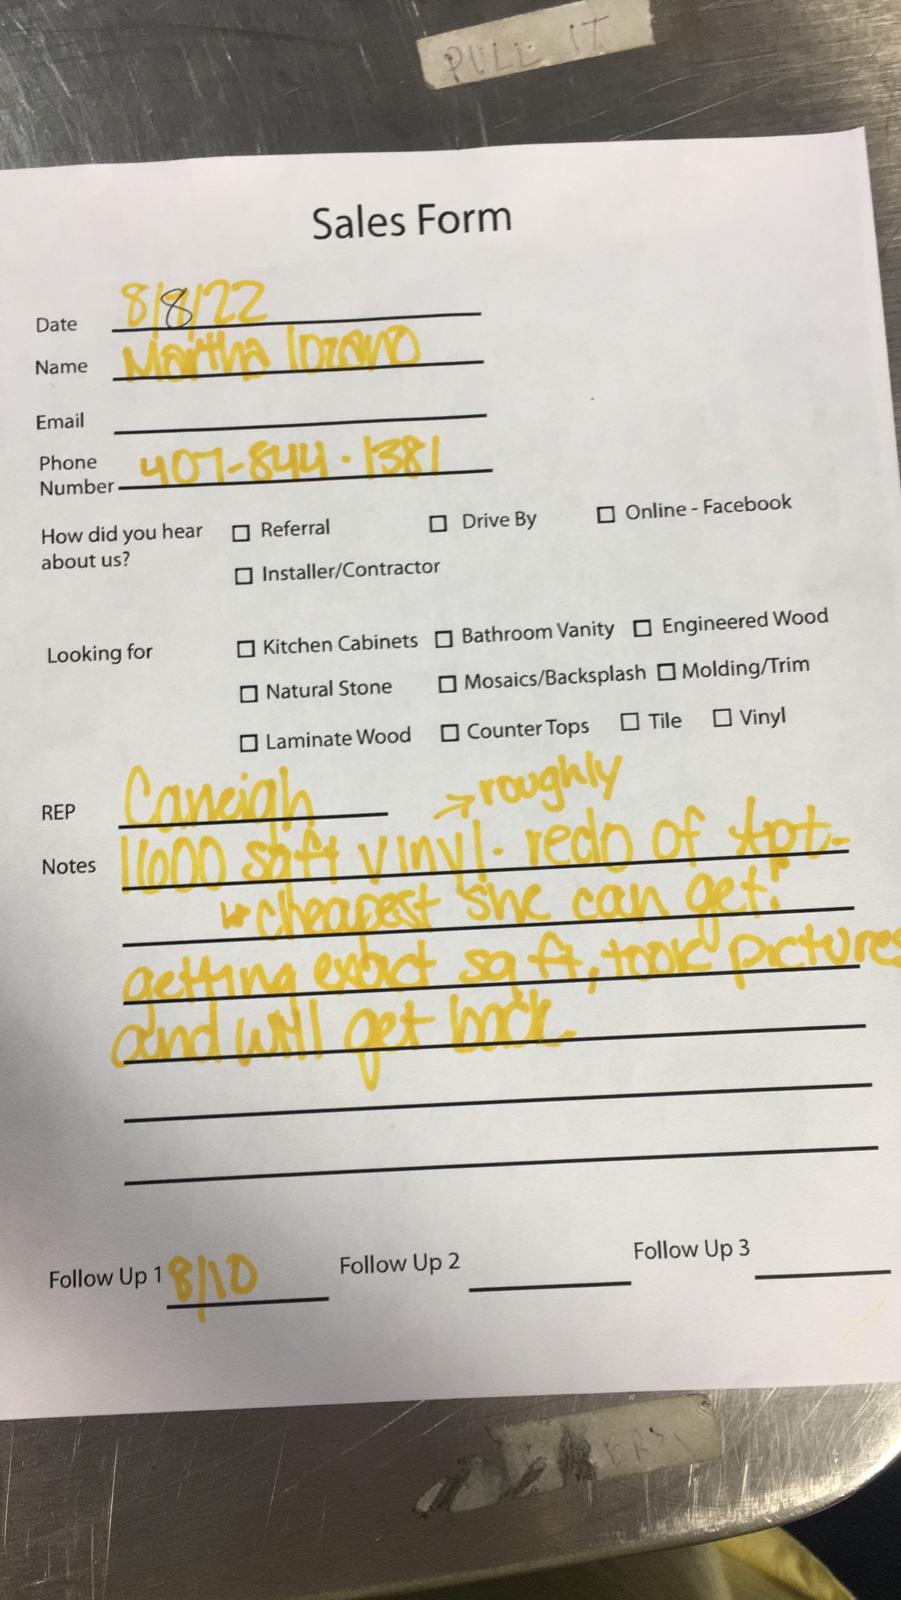 PULL IT
Sales Form
Date 8/8/22
Name Martha lozano
Email
Phone
Number 407-844-1381
How did you hear
about us?
☐ Referral ☐ Drive By ☐ Online - Facebook
☐ Installer/Contractor
Looking for
☐ Kitchen Cabinets ☐ Bathroom Vanity ☐ Engineered Wood
☐ Natural Stone ☐ Mosaics/Backsplash ☐ Molding/Trim
☐ Laminate Wood ☐ Counter Tops ☐ Tile ☐ Vinyl
REP Caneigh
→ roughly
Notes 1600 sqft vinyl - redo of Apt-
↳ cheapest she can get!
getting exact sq ft, took pictures
and will get back
Follow Up 1 8/10 Follow Up 2 Follow Up 3